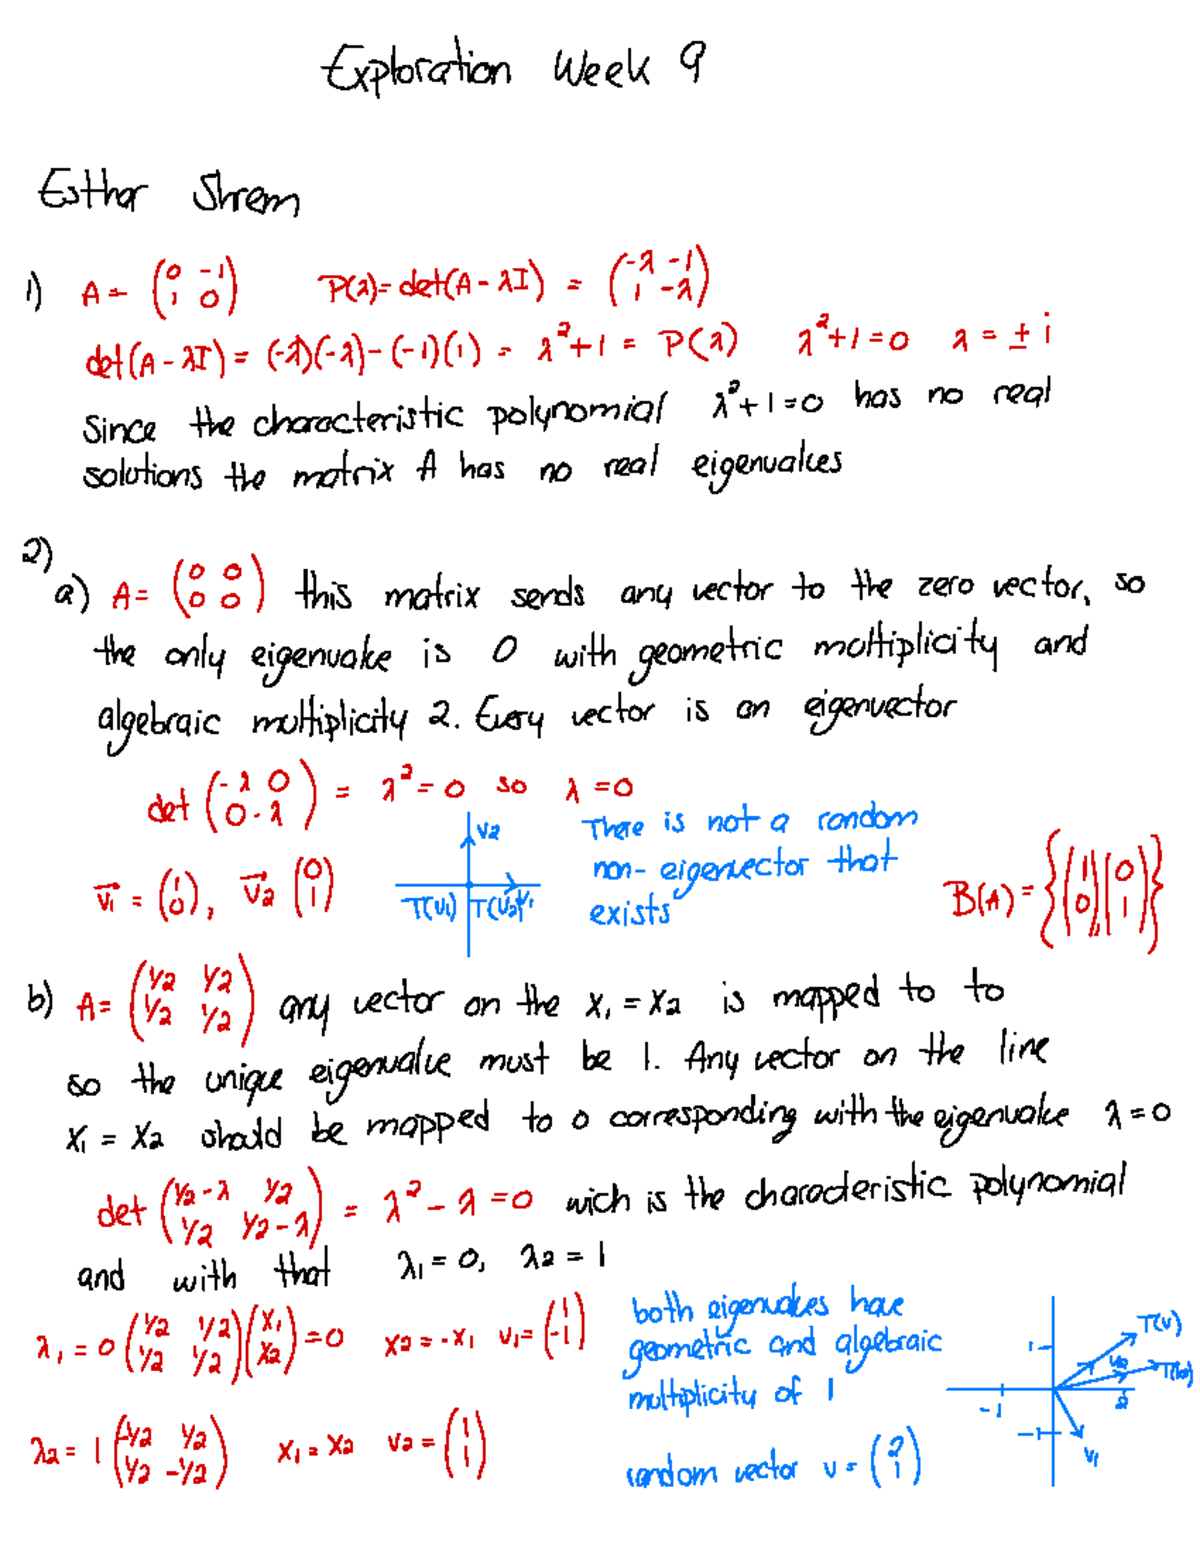 Exploration Week 9
Esther Shrem
1) A = (0 -1; 1 0) P(λ) = det(A - λI) = (-λ -1; 1 -λ)
det(A - λI) = (-λ)(-λ) - (-1)(1) = λ² + 1 = P(λ) λ² + 1 = 0 λ = ± i
Since the characteristic polynomial λ² + 1 = 0 has no real
solutions the matrix A has no real eigenvalues
2)
a) A = (0 0; 0 0) this matrix sends any vector to the zero vector, so
the only eigenvalue is 0 with geometric multiplicity and
algebraic multiplicity 2. Every vector is an eigenvector
det (-λ 0; 0 -λ) = λ² = 0 so λ = 0
There is not a random
non-eigenvector that
exists
v⃗1 = (1; 0), v⃗2 (0; 1)
v2
T(v1) T(v2) v1
B(A) = {(1; 0), (0; 1)}
b) A = (1/2 1/2; 1/2 1/2) any vector on the x1 = x2 is mapped to to
so the unique eigenvalue must be 1. Any vector on the line
x1 = x2 should be mapped to 0 corresponding with the eigenvalue λ = 0
det (1/2-λ 1/2; 1/2 1/2-λ) = λ² - λ = 0 wich is the characteristic polynomial
and with that λ1 = 0, λ2 = 1
λ1 = 0 (1/2 1/2; 1/2 1/2)(x1; x2) = 0 x2 = -x1 v1 = (1; -1)
both eigenvalues have
geometric and algebraic
multiplicity of 1
λ2 = 1 (-1/2 1/2; 1/2 -1/2) x1 = x2 v2 = (1; 1)
random vector v = (2; 1)
1 T(v)
v2
-1 2
-1 v1